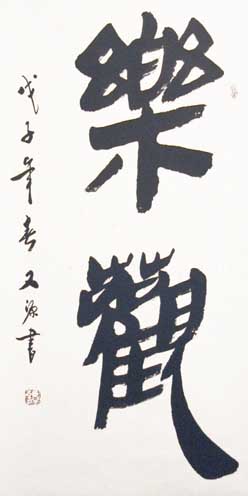 樂觀
戊子年春又源書